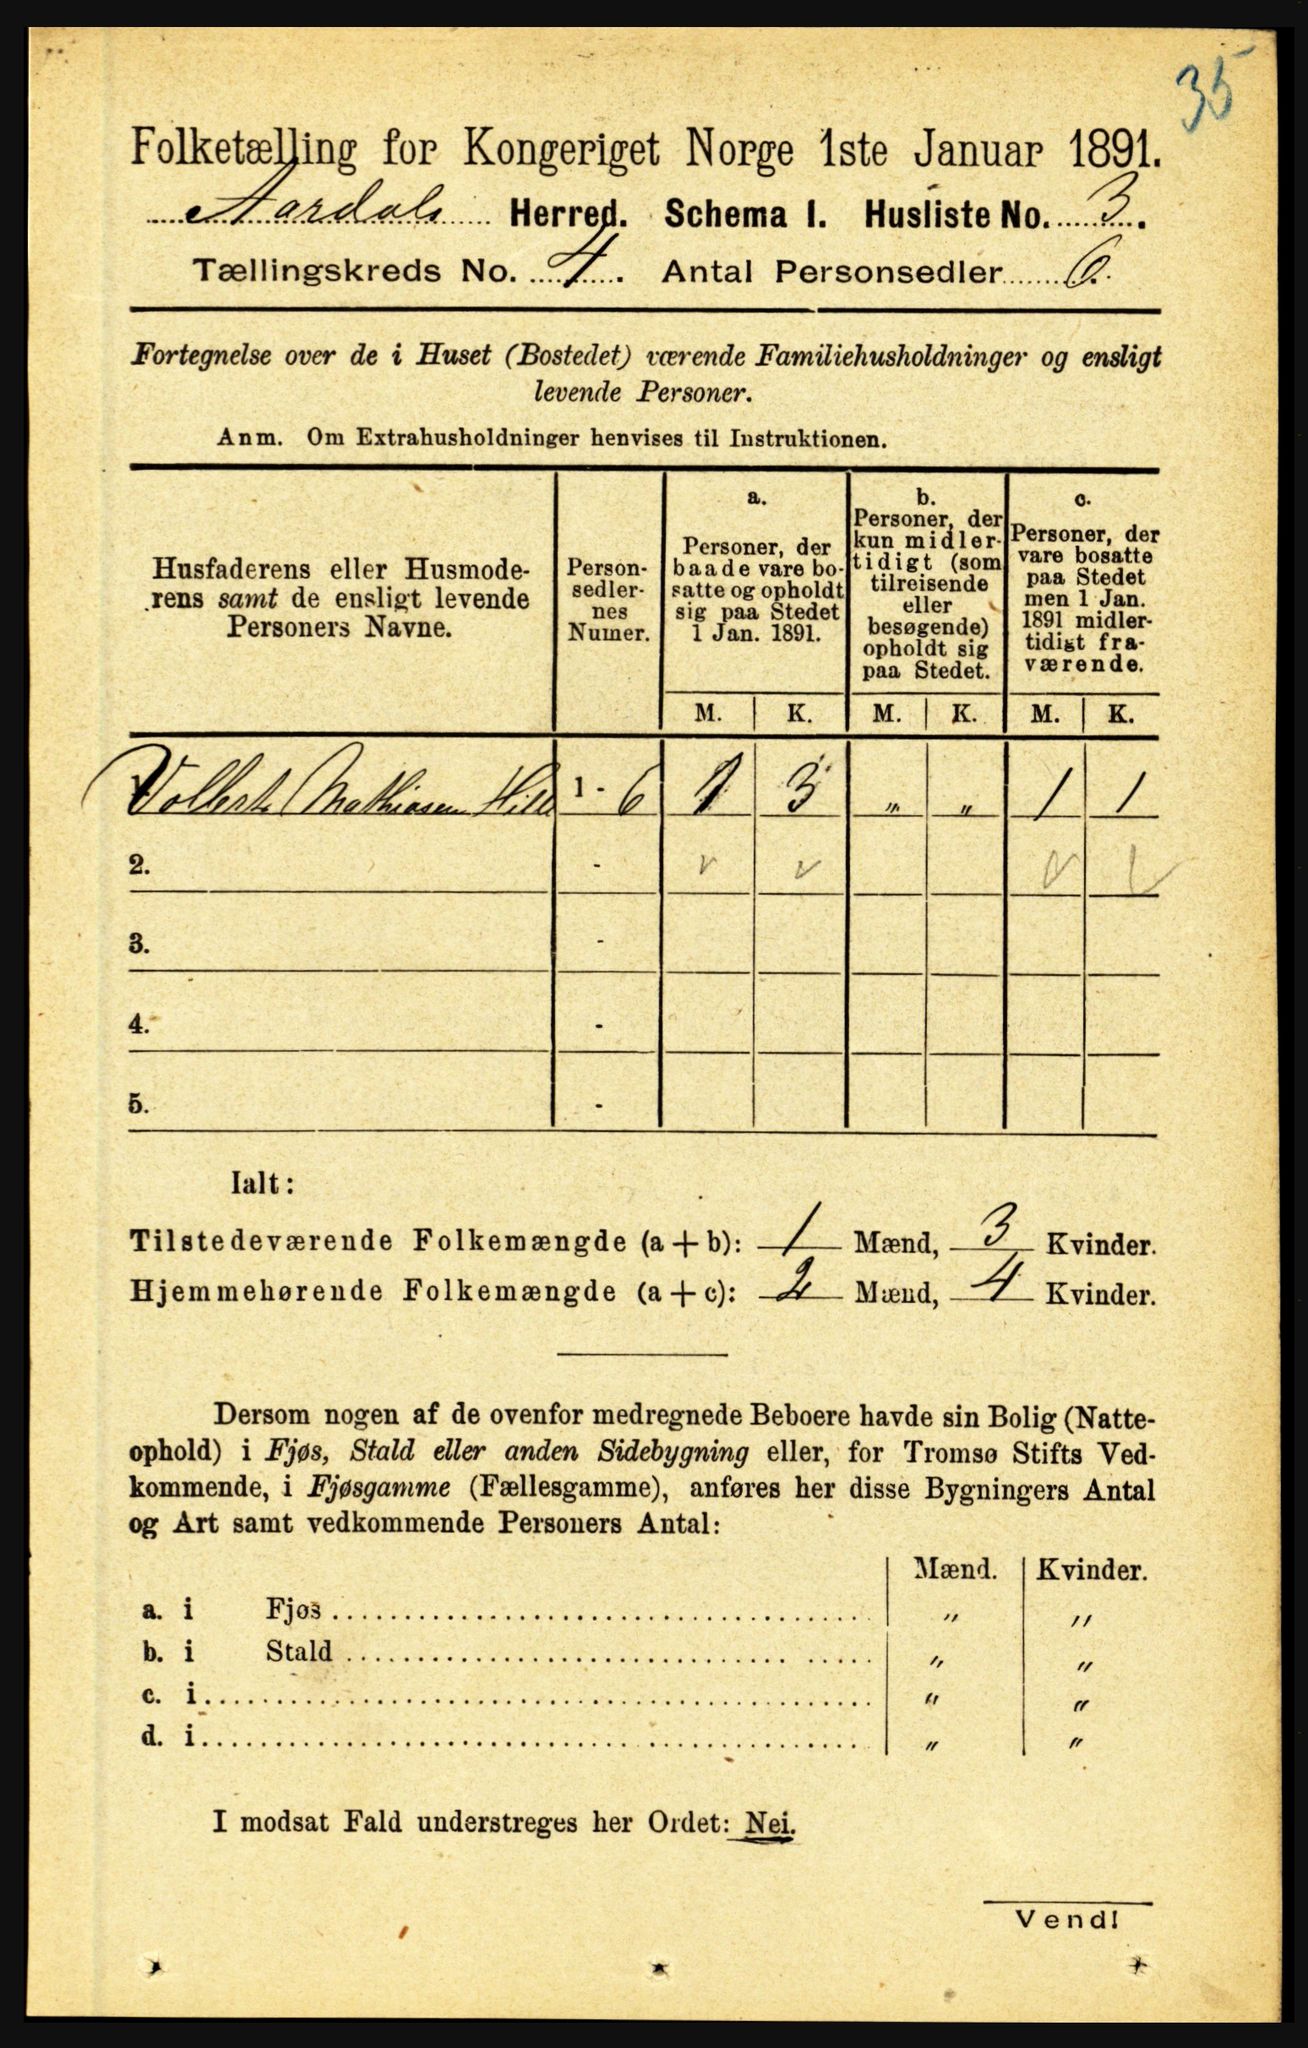 35
Folketælling for Kongeriget Norge 1ste Januar 1891.
Aardals Herred. Schema I. Husliste No. 3.
Tællingskreds No. 4. Antal Personsedler 6.
Fortegnelse over de i Huset (Bostedet) værende Familiehusholdninger og ensligt
levende Personer.
Anm. Om Extrahusholdninger henvises til Instruktionen.
Husfaderens eller Husmode-
rens samt de ensligt levende
Personers Navne.
Person-
sedler-
nes
Numer.
a.
Personer, der
baade vare bo-
satte og opholdt
sig paa Stedet
1 Jan. 1891.
b.
Personer, der
kun midler-
tidigt (som
tilreisende
eller
besøgende)
opholdt sig
paa Stedet.
c.
Personer, der
vare bosatte
paa Stedet
men 1 Jan.
1891 midler-
tidigt fra-
værende.
M. K. M. K. M. K.
Mathiasen 1 - 6 1 3 „ „ 1 1
2. - v v v v
3. -
4. -
5. -
Ialt:
Tilstedeværende Folkemængde (a + b): 1 Mænd, 3 Kvinder.
Hjemmehørende Folkemængde (a + c): 2 Mænd, 4 Kvinder.
Dersom nogen af de ovenfor medregnede Beboere havde sin Bolig (Natte-
ophold) i Fjøs, Stald eller anden Sidebygning eller, for Tromsø Stifts Ved-
kommende, i Fjøsgamme (Fællesgamme), anføres her disse Bygningers Antal
og Art samt vedkommende Personers Antal:
Mænd. Kvinder.
a. i Fjøs „ „
b. i Stald „ „
c. i „ „
d. i „ „
I modsat Fald understreges her Ordet: Nei.
Vend!